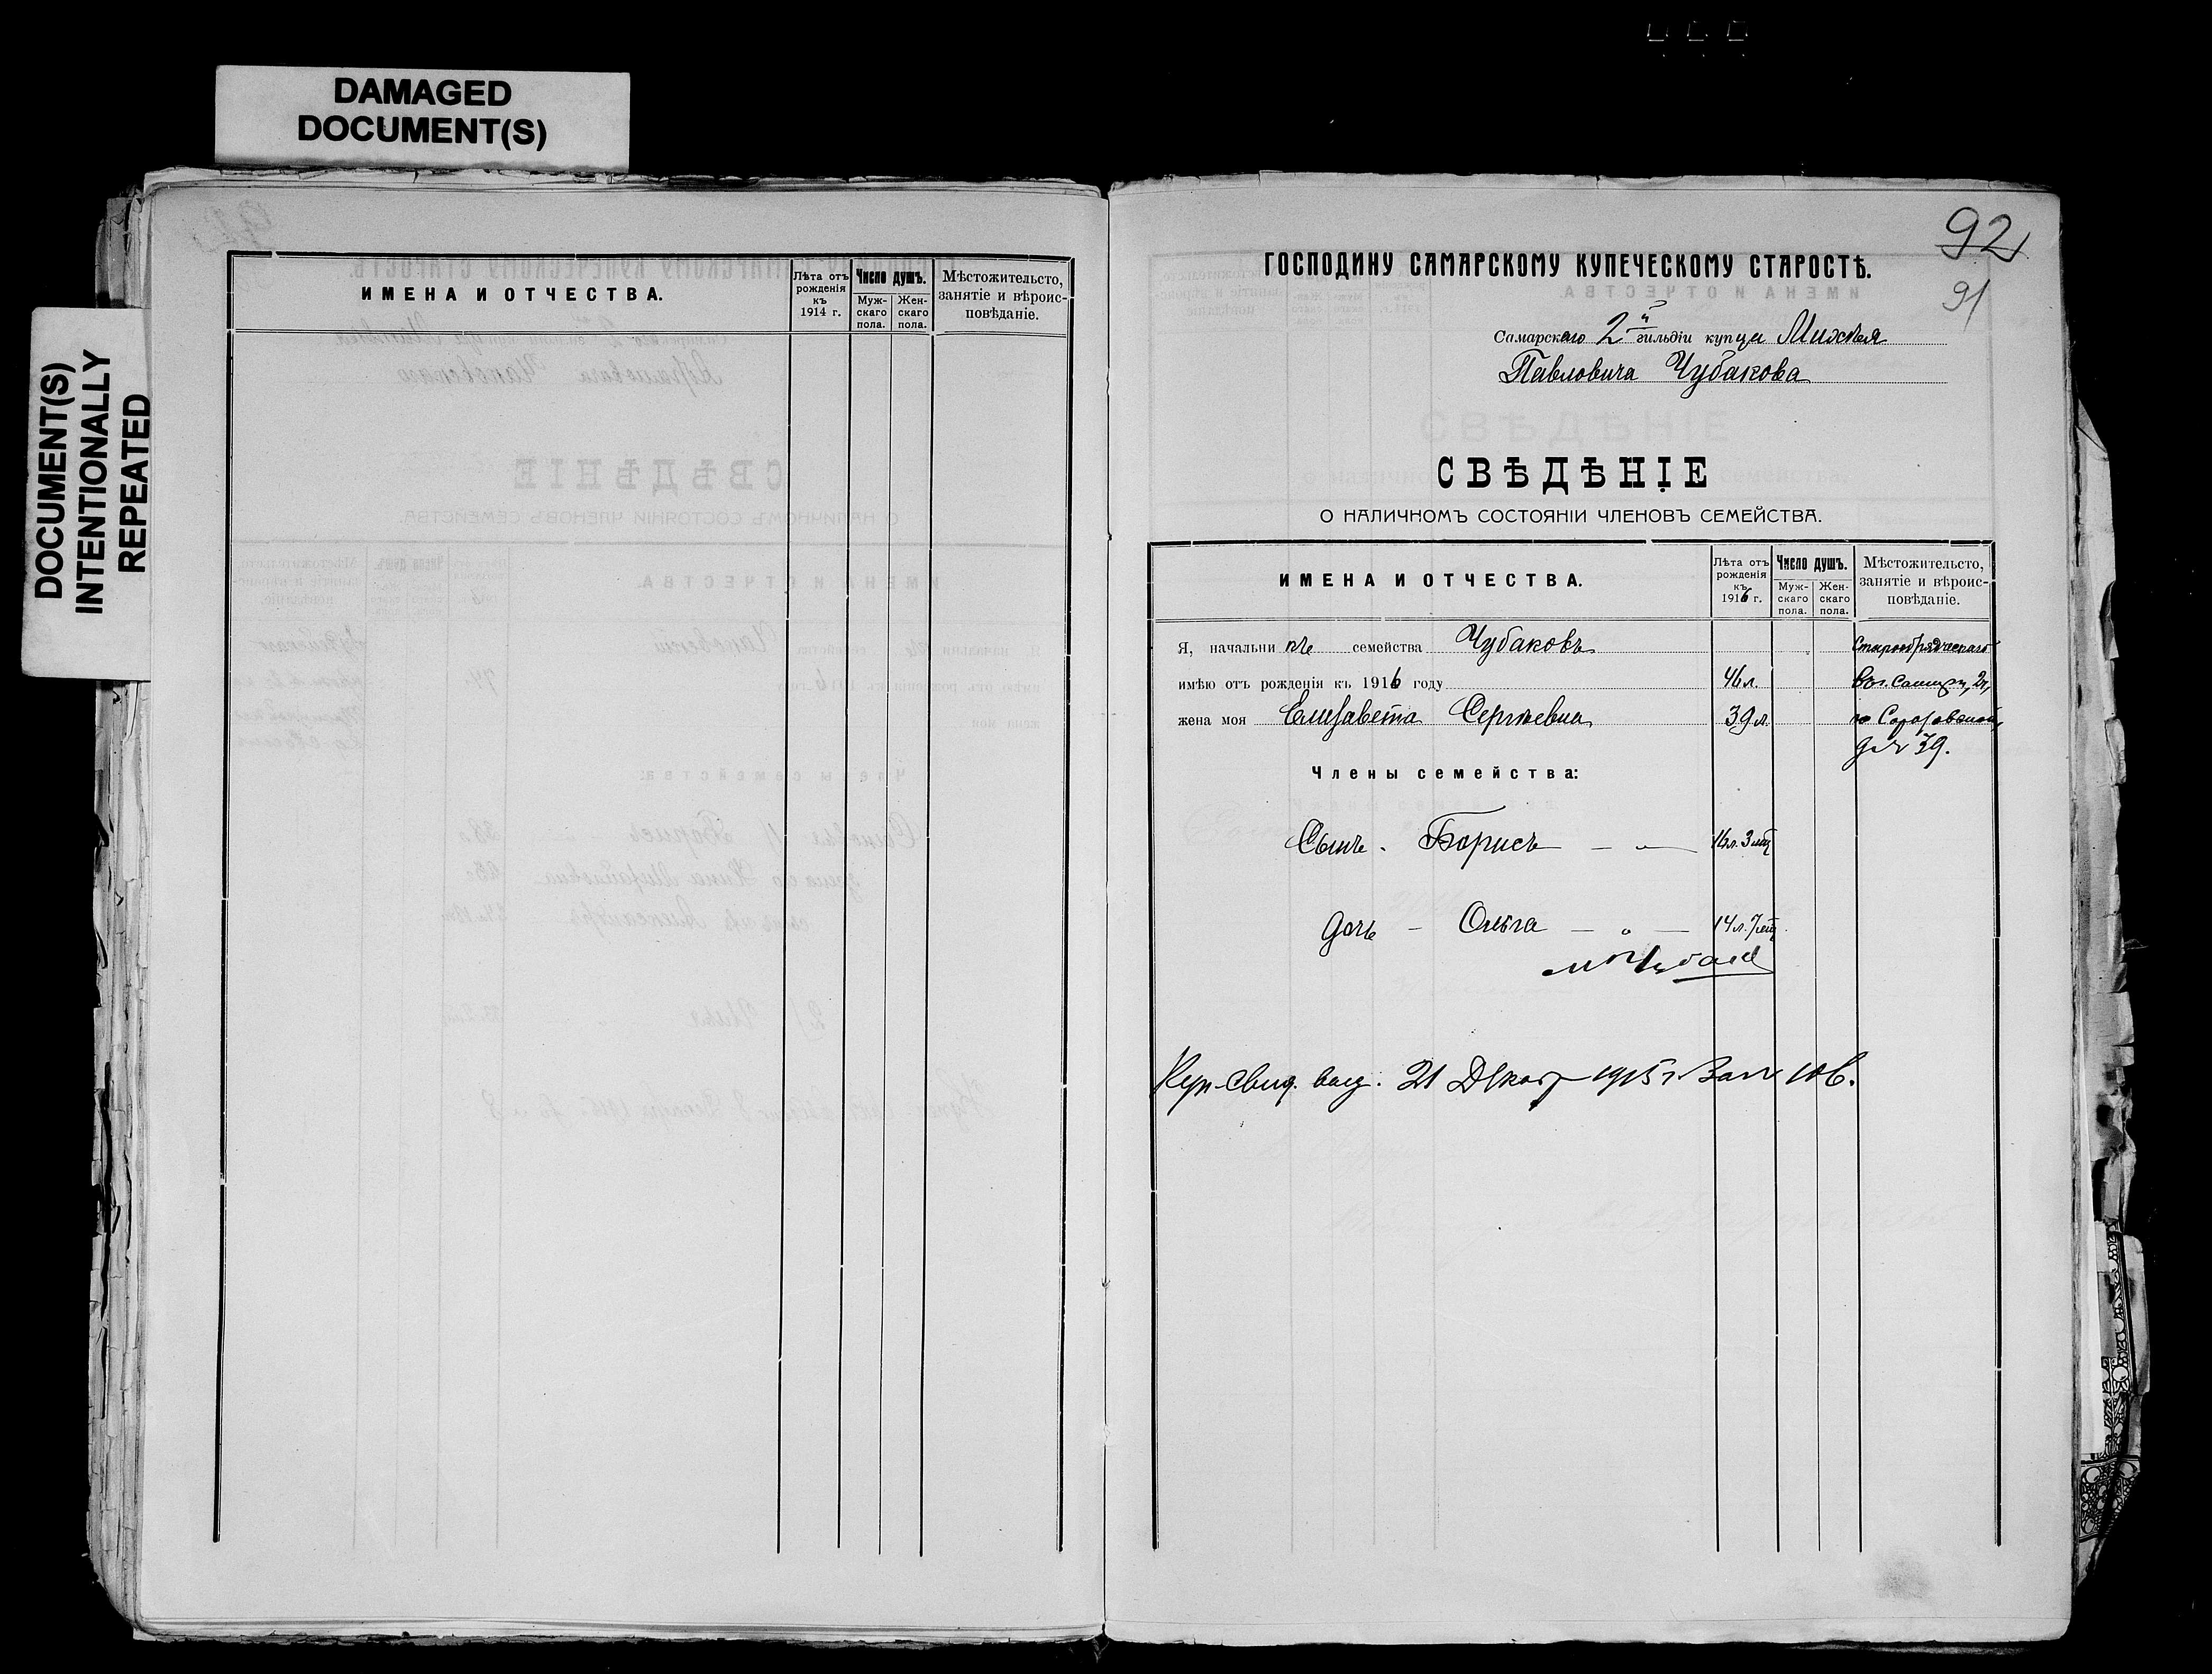 DAMAGED
DOCUMENT(S)
DOCUMENT(S)
INTENTIONALLY
REPEATED
ИМЕНА И ОТЧЕСТВА.
Лѣта отъ рожденія къ 1914 г.
Число душъ.
Муж-скаго пола.
Жен-скаго пола.
Мѣстожительсто, занятіе и вѣроис-повѣданіе.
92
91
ГОСПОДИНУ САМАРСКОМУ КУПЕЧЕСКОМУ СТАРОСТѢ.
Самарскаго 2й гильдіи купца Михея
Павловича Чубакова
СВѢДѢНІЕ
О НАЛИЧНОМЪ СОСТОЯНІИ ЧЛЕНОВЪ СЕМЕЙСТВА.
ИМЕНА И ОТЧЕСТВА.
Лѣта отъ рожденія къ 1916 г.
Число душъ.
Муж-скаго пола.
Жен-скаго пола.
Мѣстожительсто, занятіе и вѣроис-повѣданіе.
Я, начальникъ семейства Чубаковъ Старообрядческаго
имѣю отъ рожденія къ 1916 году 46 л.
жена моя Елизавета Сергѣевна 39 л.
39.
Члены семейства:
Сынъ - Борисъ — „ — 16 л. 3 мѣц
Дочь - Ольга — „ — 14 л. 7 мѣц
Куп. Свид. выд. 21 Декаб 1915 г. За №